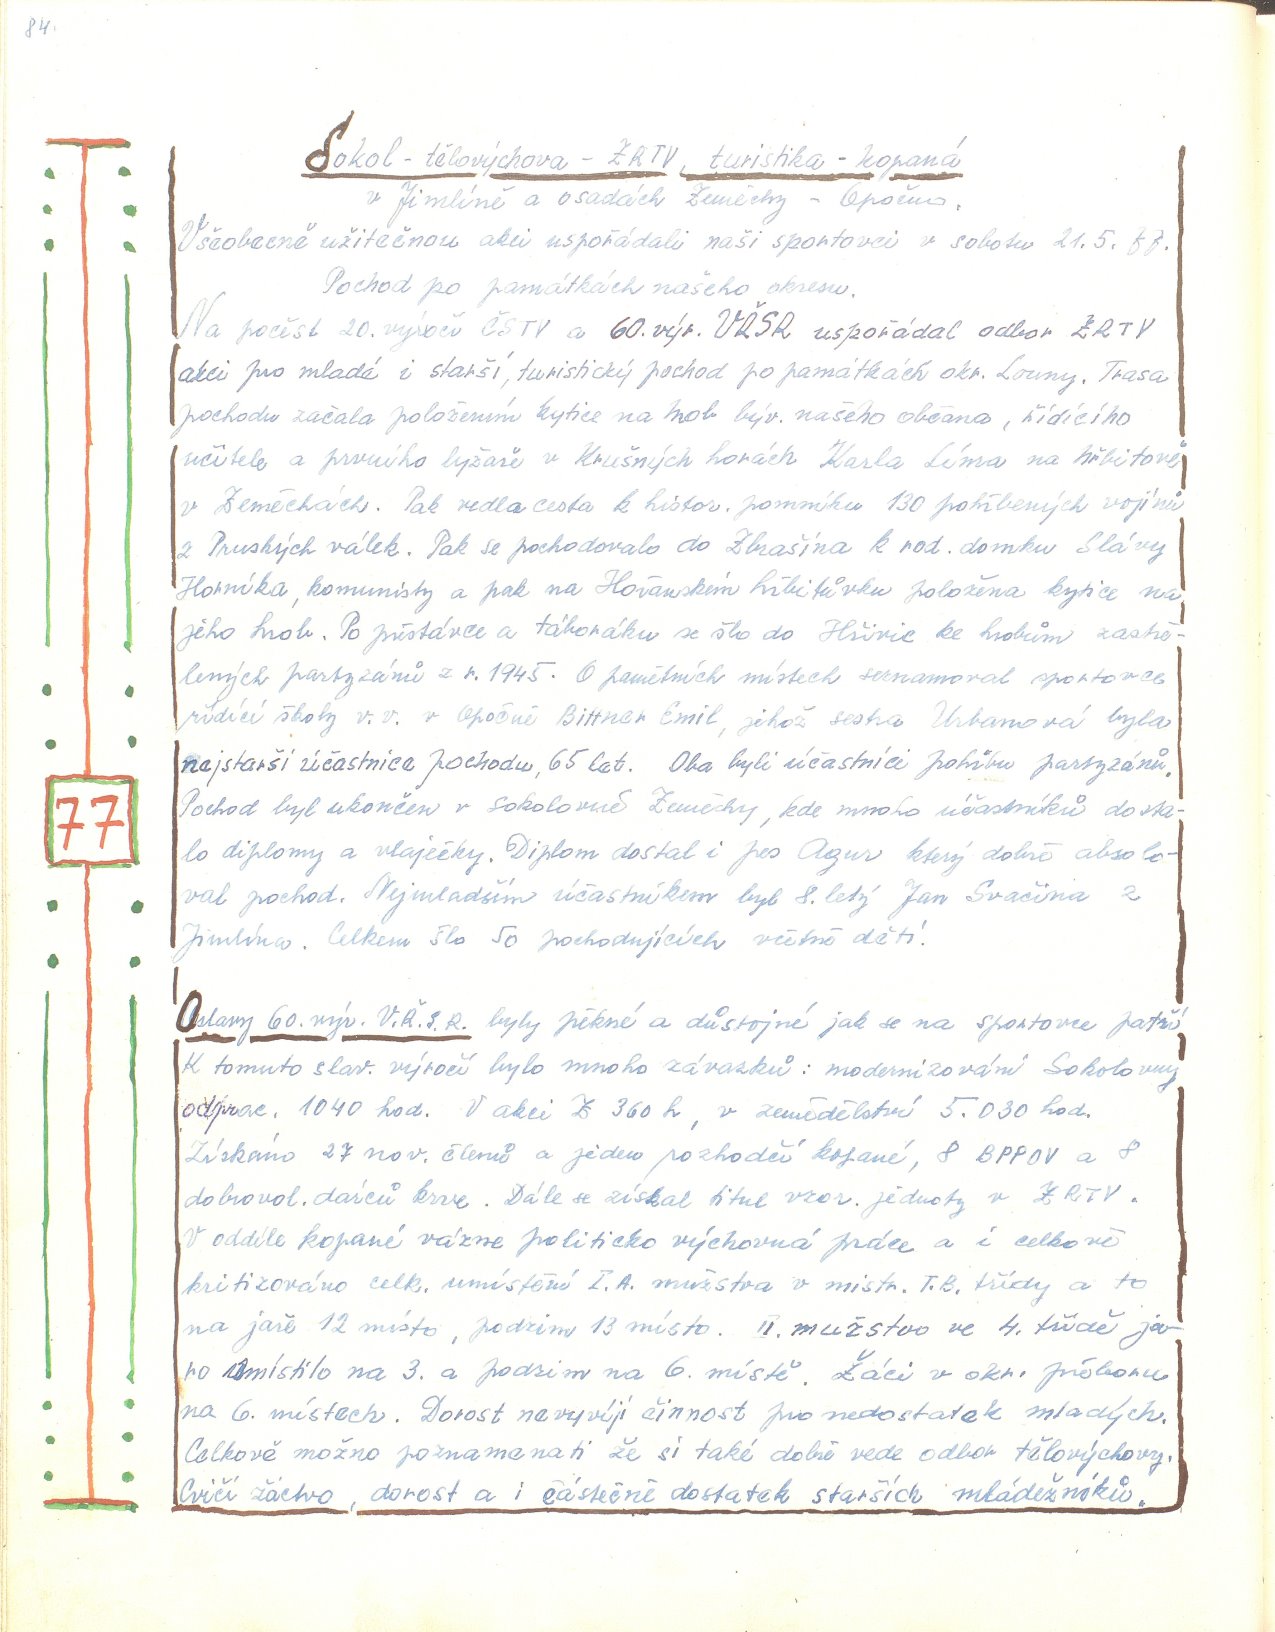 84.
Sokol - tělovýchova - ZRTV, turistika - kopaná
v Jimlíně a osadách Zeměchy - Opočno.
Všeobecně užitečnou akci uspořádali naši sportovci v sobotu 21. 5. 77.
Pochod po památkách našeho okresu.
Na počest 20. výročí ČSTV a 60. výr. VŘSR uspořádal odbor ZRTV
akci pro mladé i starší, turistický pochod po památkách okr. Louny. Trasa
pochodu začala položením kytice na hrob býv. našeho občana, řídícího
učitele a prvního lyžaře v Krušných horách Karla Líma na hřbitově
v Zeměchách. Pak vedla cesta k histor. pomníku 130 pohřbených vojínů
z Pruských válek. Pak se pochodovalo do Zbrašína k rod. domku Slávy
Horníka, komunisty a pak na Hořanském hřbitůvku položena kytice na
jeho hrob. Po přestávce a táboráku se šlo do Hřivic ke hrobům zastře-
lených partyzánů z r. 1945. O pamětních místech seznamoval sportovce
řídící školy v. v. v Opočně Bittner Emil, jehož sestra Urbanová byla
nejstarší účastnice pochodu, 65 let. Oba byli účastníci pohřbu partyzánů.
Pochod byl ukončen v sokolovně Zeměchy, kde mnoho účastníků dosta-
lo diplomy a vlaječky. Diplom dostal i pes Agur který dobře absolo-
val pochod. Nejmladším účastníkem byl 8. letý Jan Svačina z
Jimlína. Celkem šlo 50 pochodujících včetně dětí.
77
Oslavy 60. výr. V.Ř.S.R. byly pěkné a důstojné jak se na sportovce patří
K tomuto slav. výročí bylo mnoho závazků: modernizování Sokolovny
odprac. 1040 hod. V akci Z 360 h, v zemědělství 5.030 hod.
Získáno 27 nov. členů a jeden rozhodčí kopané, 8 BPPOV a 8
dobrovol. dárců krve. Dále se získal titul vzor. jednoty v ZRTV.
V oddíle kopané vázne politicko výchovná práce a i celkově
kritizováno celk. umístění I.A. mužstva v mistr. I.B. třídy a to
na jaře 12 místo, podzim 13 místo. II. mužstvo ve 4. třídě ja-
ro umístilo na 3. a podzim na 6. místě. Žáci v okr. přeboru
na 6. místech. Dorost nevyvíjí činnost pro nedostatek mladých.
Celkově možno poznamenati že si také dobře vede odbor tělovýchovy.
Cvičí žáctvo, dorost a i částečně dostatek starších mládežníků.